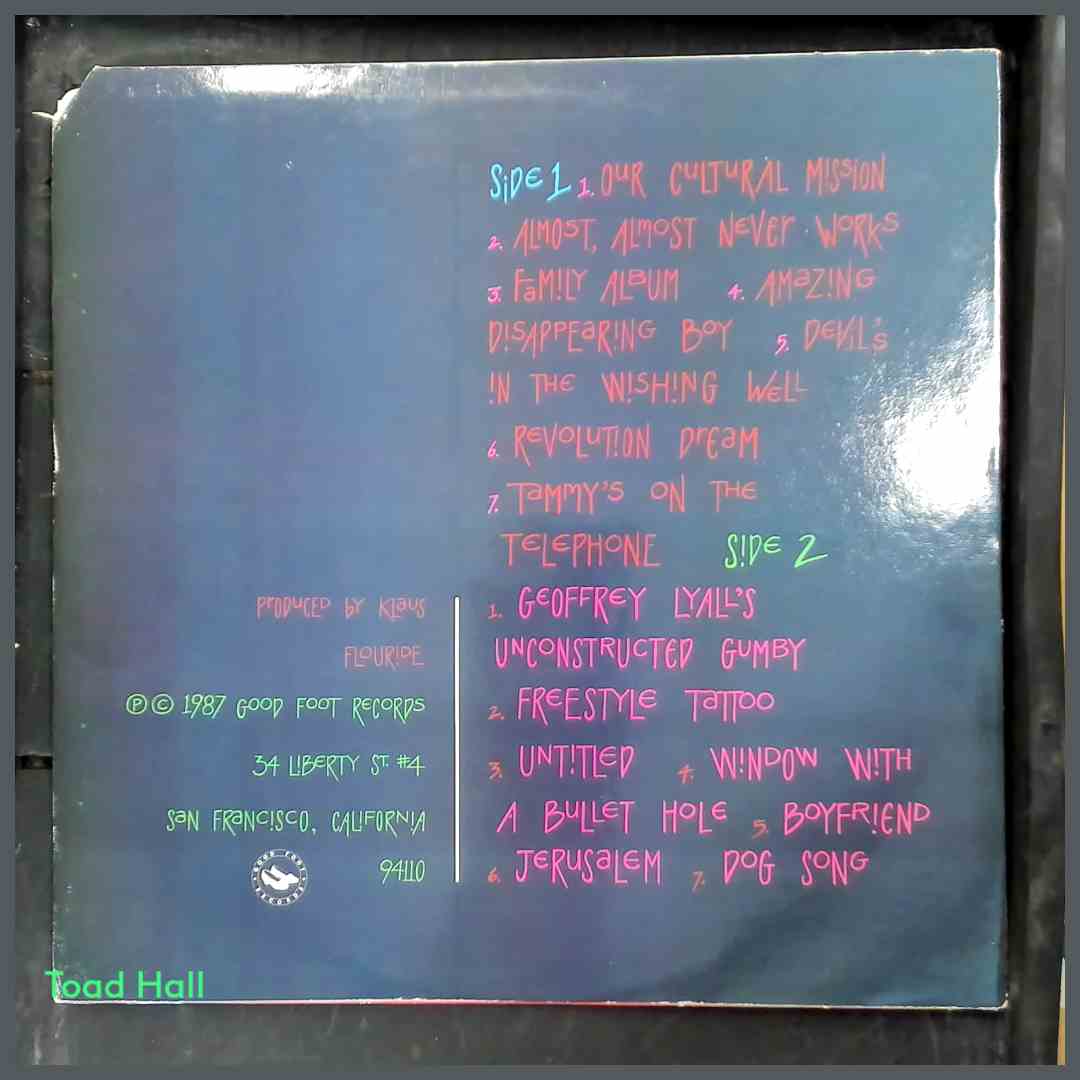 SIDE 1 1. OUR CULTURAL MISSION
2. ALMOST, ALMOST NEVER WORKS
3. FAMILY ALBUM 4. AMAZING
DISAPPEARING BOY 5. DEVIL'S
IN THE WISHING WELL
6. REVOLUTION DREAM
7. TAMMY'S ON THE
TELEPHONE SIDE 2
1. GEOFFREY LYALL'S
UNCONSTRUCTED GUMBY
2. FREESTYLE TATTOO
3. UNTITLED 4. WINDOW WITH
A BULLET HOLE 5. BOYFRIEND
6. JERUSALEM 7. DOG SONG
PRODUCED BY KLAUS
FLOURIDE
℗© 1987 GOOD FOOT RECORDS
34 LIBERTY ST. #4
SAN FRANCISCO, CALIFORNIA
94110
GOOD FOOT RECORDS
Toad Hall